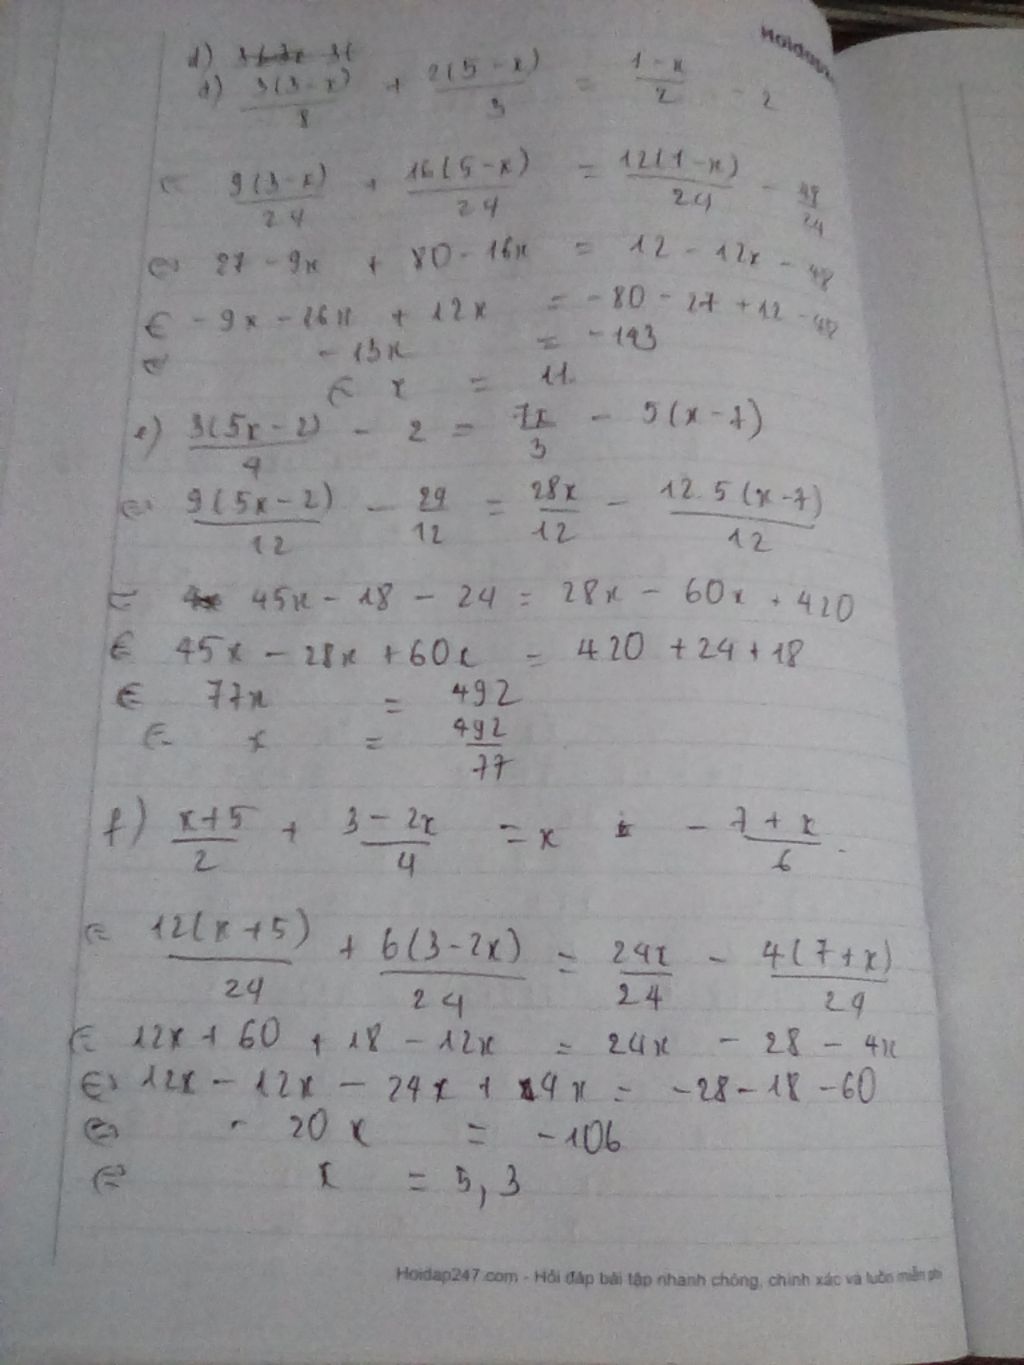 Hoidap2
d)
d) 3(3-x)/8 + 2(5-x)/3 = 1-x/2 - 2
⇔ 9(3-x)/24 + 16(5-x)/24 = 12(1-x)/24 - 48/24
⇔ 27 - 9x + 80 - 16x = 12 - 12x - 48
⇔ -9x - 16x + 12x = -80 - 27 + 12 - 48
⇔ -13x = -143
⇔ x = 11
e) 3(5x-2)/4 - 2 = 7x/3 - 5(x-7)
⇔ 9(5x-2)/12 - 24/12 = 28x/12 - 12.5(x-7)/12
⇔ 45x - 18 - 24 = 28x - 60x + 420
⇔ 45x - 28x + 60x = 420 + 24 + 18
⇔ 77x = 492
⇔ x = 492/77
f) x+5/2 + 3-2x/4 = x - 7+x/6
⇔ 12(x+5)/24 + 6(3-2x)/24 = 24x/24 - 4(7+x)/24
⇔ 12x + 60 + 18 - 12x = 24x - 28 - 4x
⇔ 12x - 12x - 24x + 4x = -28 - 18 - 60
⇔ - 20x = -106
⇔ x = 5,3
Hoidap247.com - Hỏi đáp bài tập nhanh chóng, chính xác và luôn miễn phí